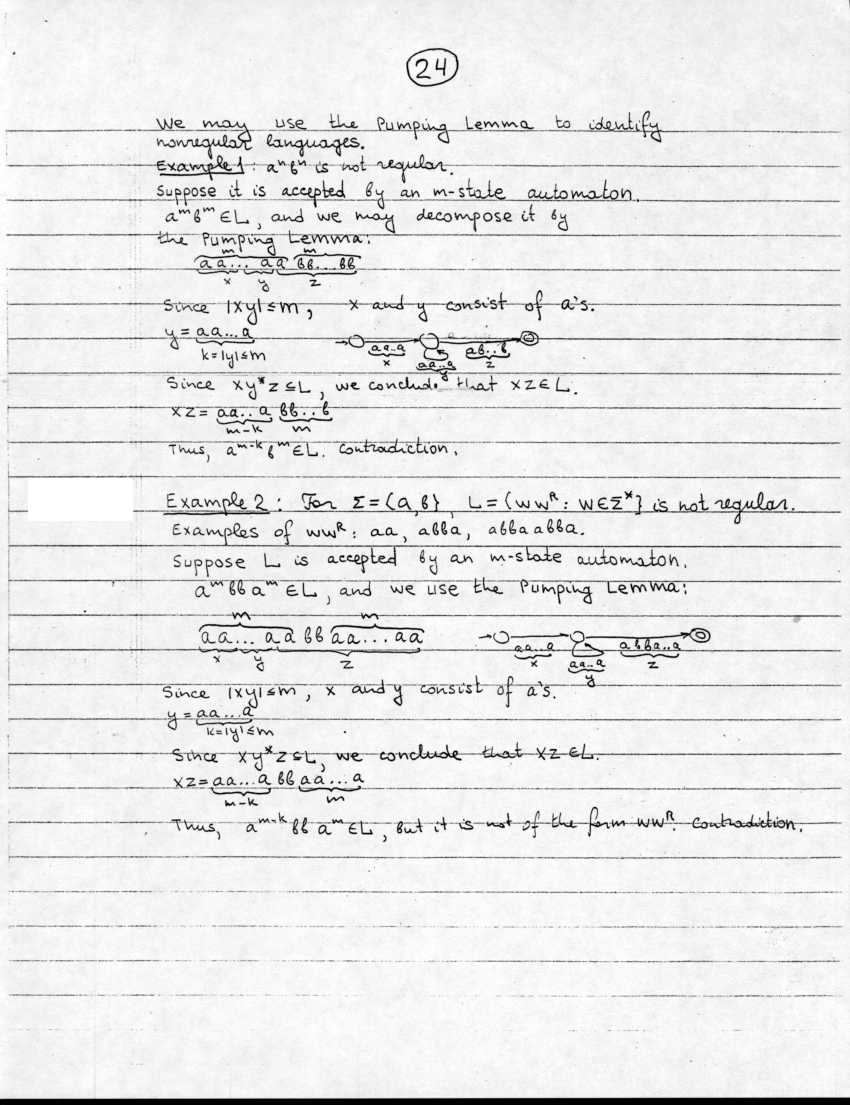 24
We may use the Pumping Lemma to identify
nonregular languages.
Example 1: aⁿbⁿ is not regular.
Suppose it is accepted by an m-state automaton.
aᵐbᵐ ∈ L, and we may decompose it by
the Pumping Lemma:
m m
aa... aa bb...bb
x y z
Since |xy| ≤ m, x and y consist of a's.
y = aa...a
k=|y|≤m
aa..a aa..a ab..b
x y z
Since xy*z ⊆ L, we conclude that xz ∈ L.
xz = aa..a bb..b
m-k m
Thus, aᵐ⁻ᵏbᵐ ∈ L. Contradiction.
Example 2: For Σ={a,b}, L={wwᴿ: w∈Σ*} is not regular.
Examples of wwᴿ: aa, abba, abbaabba.
Suppose L is accepted by an m-state automaton.
aᵐbbaᵐ ∈ L, and we use the Pumping Lemma:
m m
aa... aa bb aa...aa
x y z
aa..a aa..a abba..a
x y z
Since |xy| ≤ m, x and y consist of a's.
y = aa...a
k=|y|≤m
Since xy*z ⊆ L, we conclude that xz ∈ L.
xz = aa...a bb aa...a
m-k m
Thus, aᵐ⁻ᵏbbaᵐ ∈ L, but it is not of the form wwᴿ. Contradiction.